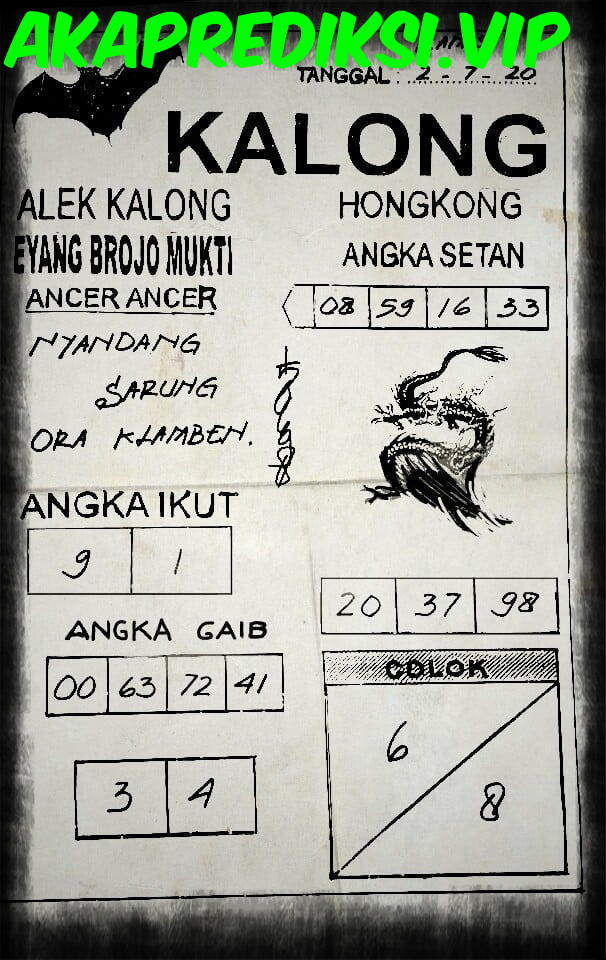 AKAPREDIKSI.VIP
TANGGAL : 2 - 7 - 20
KALONG
ALEK KALONG
EYANG BROJO MUKTI
ANCER ANCER
NYANDANG
SARUNG
ORA KLAMBEN.
HONGKONG
ANGKA SETAN
08 59 16 33
ANGKA IKUT
9 1
20 37 98
ANGKA GAIB
00 63 72 41
3 4
COLOK
6
8